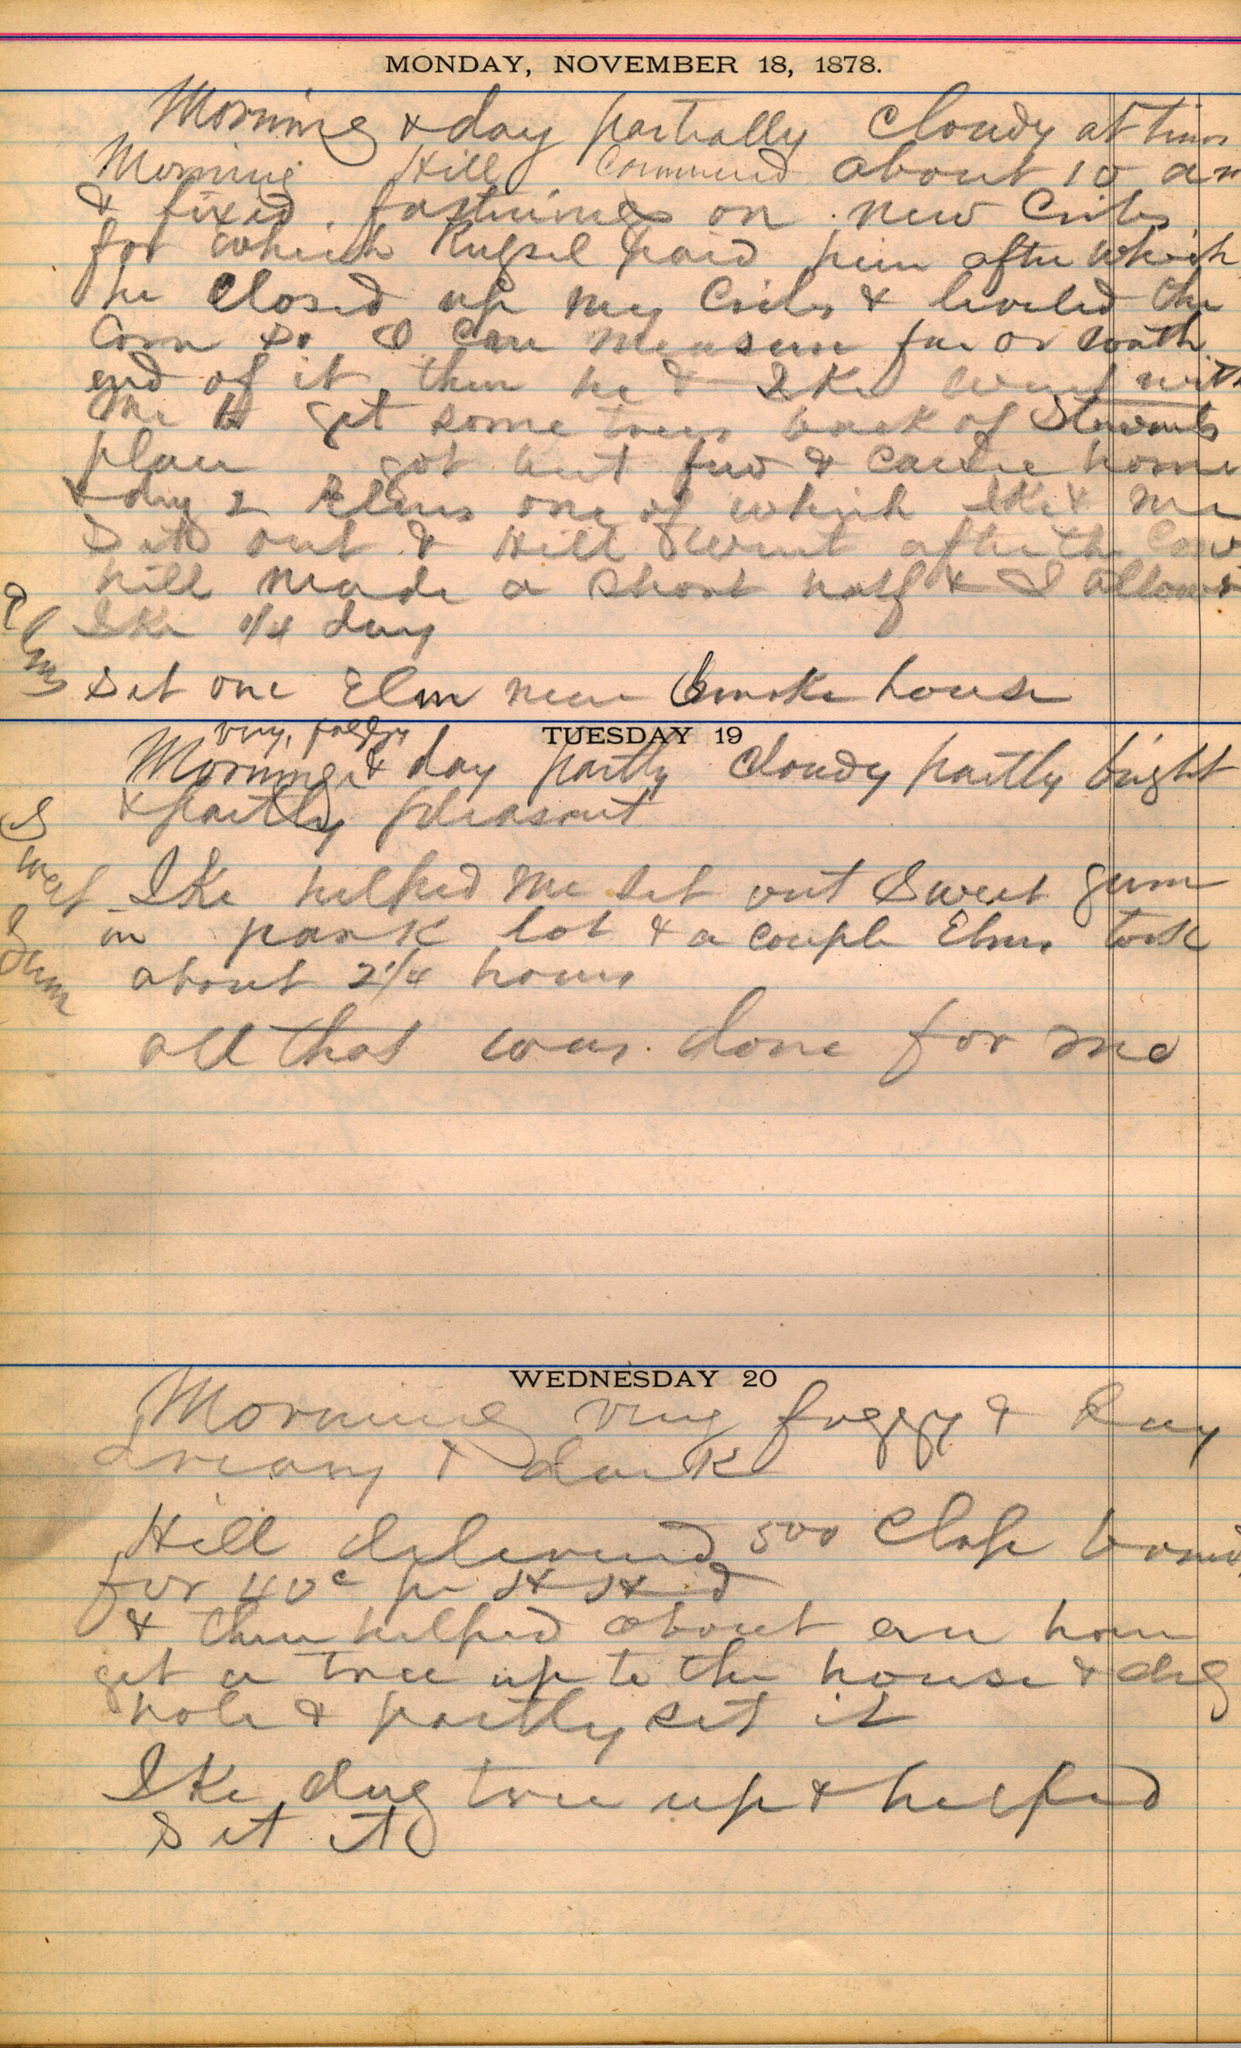 MONDAY, NOVEMBER 18, 1878.
Morning & day partially Cloudy at times
Morning Hill Commencd about 10 am
& fixed fastnings on new Cribs
for which paid him after which
he Closed up my Cribs & leveled the
Corn so I can measure south
end of it then he & Ike went with
me to get some trees back of Stewarts
place got but few & came home
& dug 2 Elms one of which Ike & me
Set out & Hill went after the Cow
hill made a short half & I allow
Ike 1/4 day
Elms
Set one Elm near Smoke house
TUESDAY 19
very foggy
Morning & day partly Cloudy partly bright
& partly pleasant
Sweet Gum
Ike helped me set out Sweet gum
in park lot & a couple Elms took
about 2 1/4 hours
all that was done for me
WEDNESDAY 20
Morning very foggy & Day
dreary & dark
Hill delivered 500 Clap boards
for 40c per
& then helped about an hour
get a tree up to the house & dig
hole & partly set it
Ike dug tree up & helped
set it